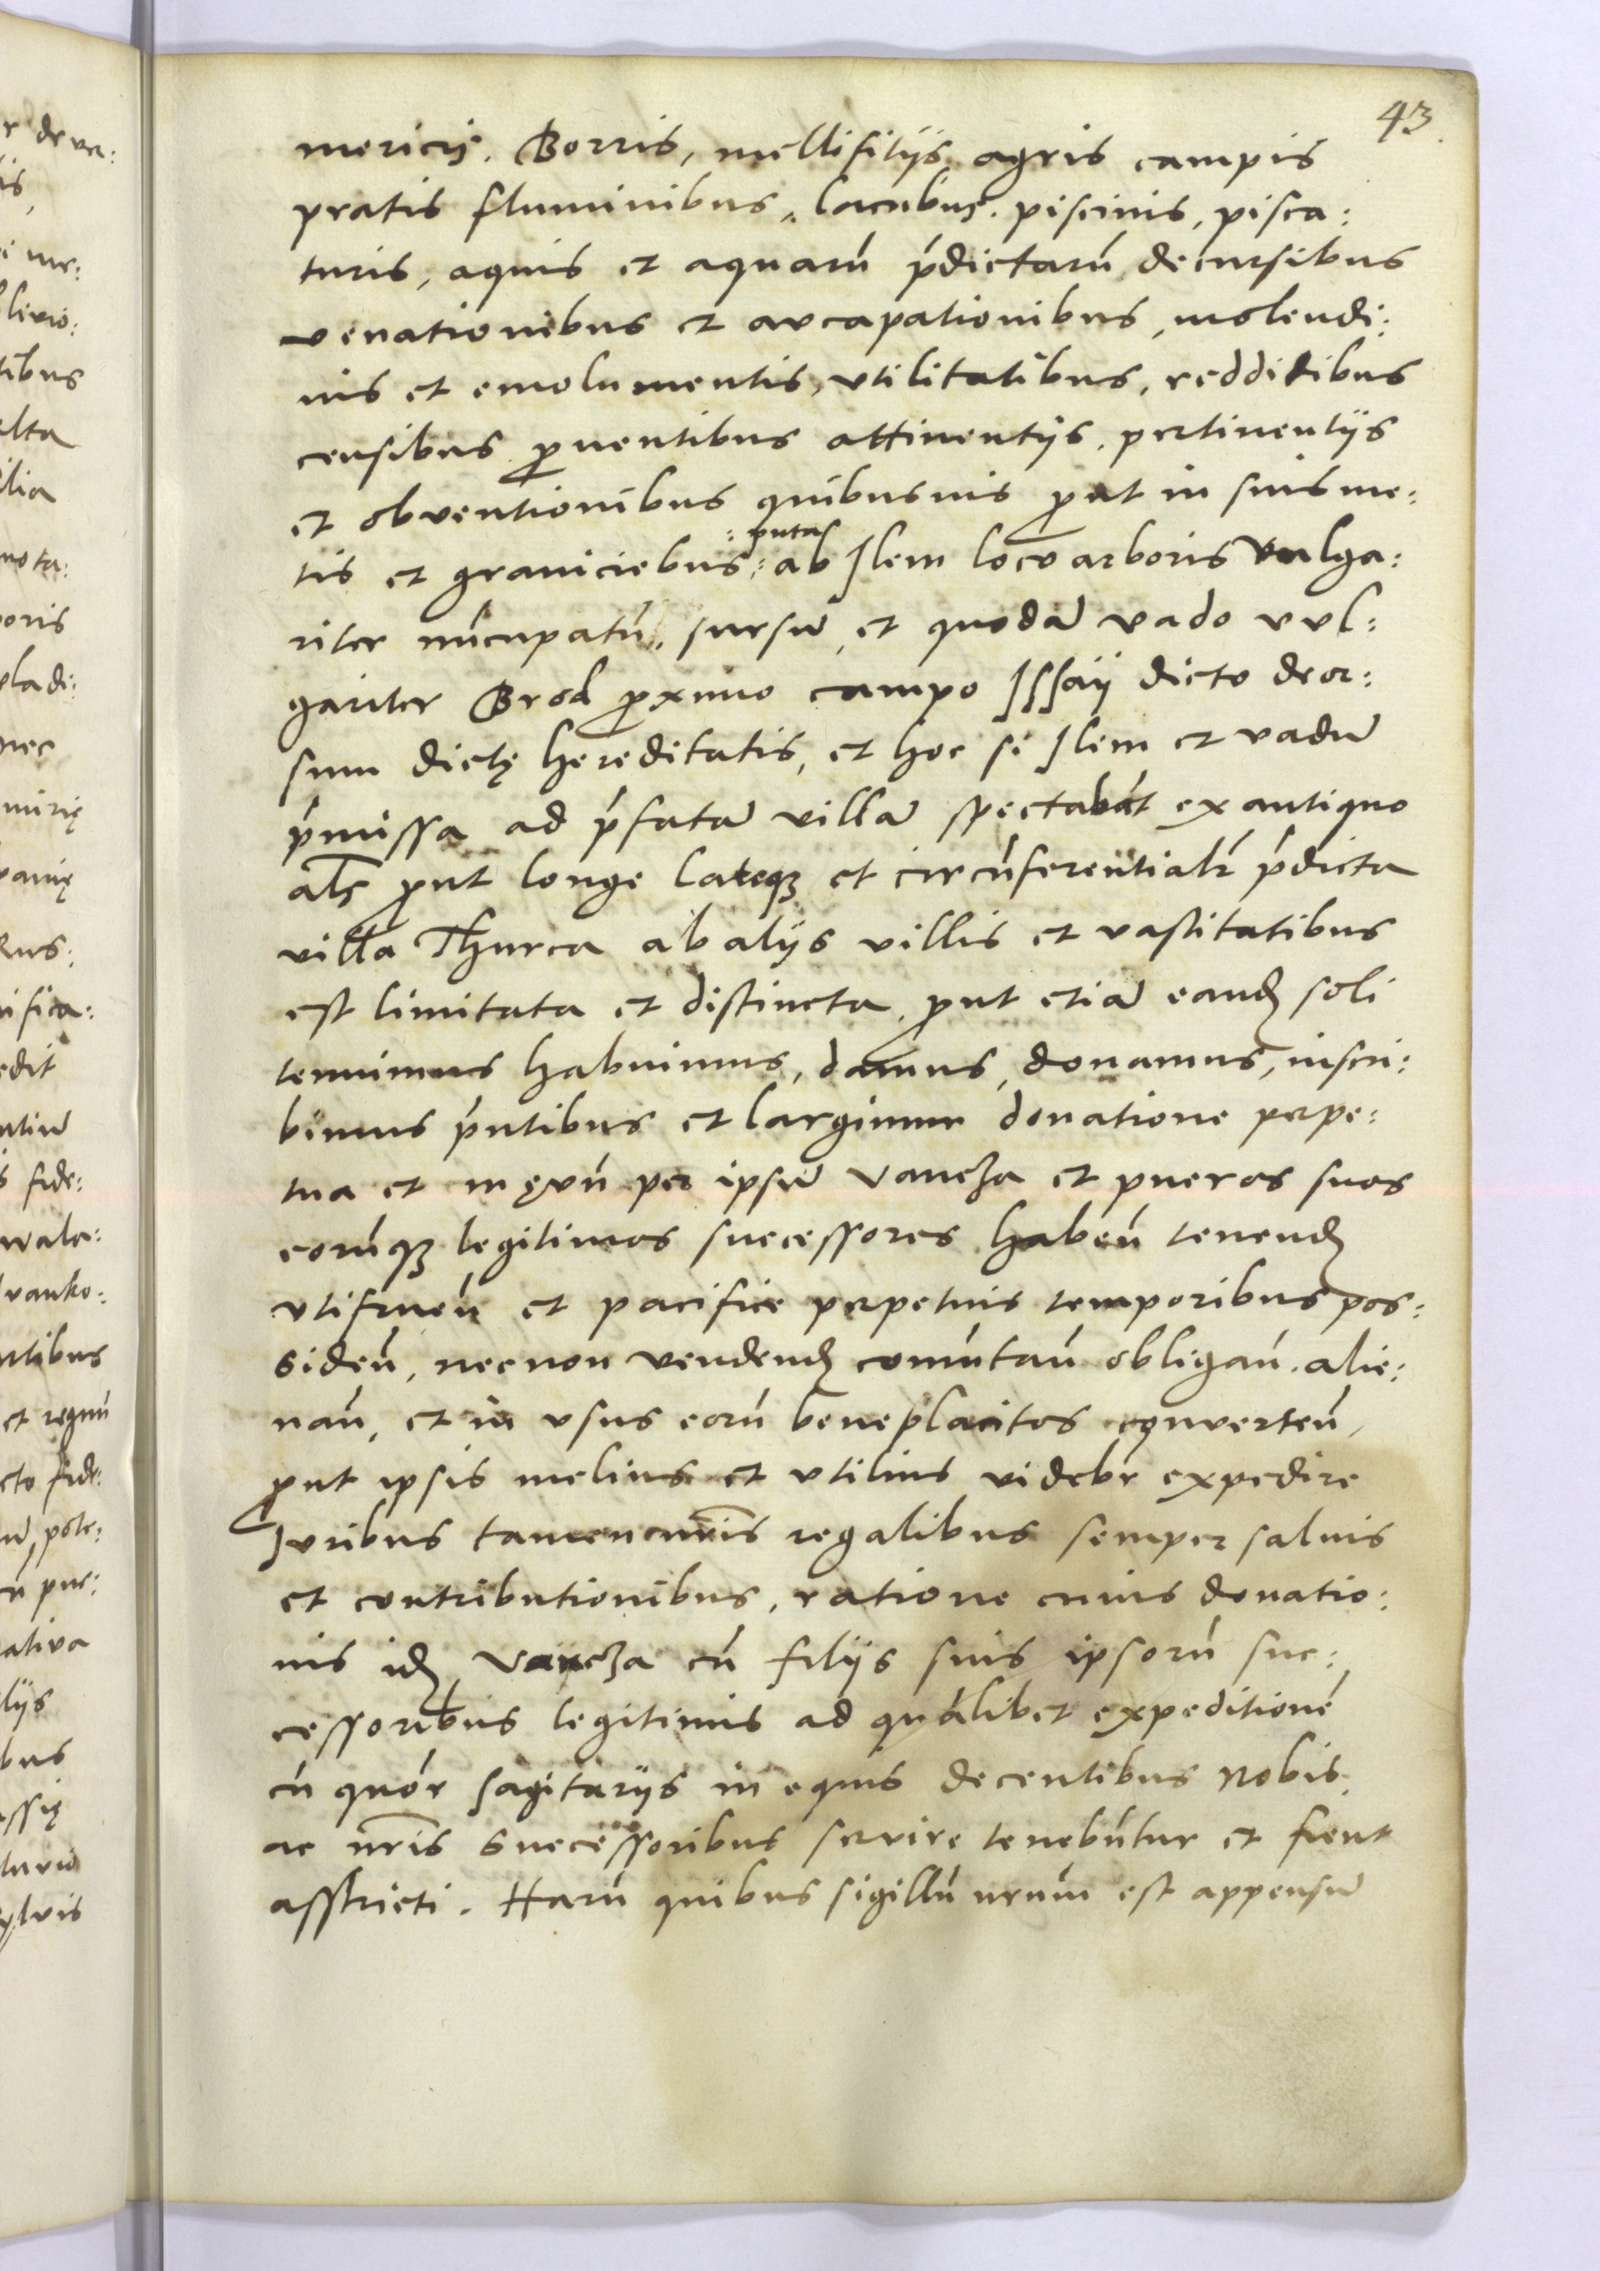 43
mericis. Borris, mellifitijs agris campis
pratis fluminibus, lacubus. piscinis, pisca:
turis, aquis et aquarū p̄dictarū decursibus
venationibus et aucapationibus, molendi:
nis et emolumentis, vtilitatibus, redditibus
censibus ꝓuentibus attinentijs. pertinentijs
et obventionibus quibusuis ꝓut in suis me:
:puta
tis et graniciebus: ab Jlem loco arboris vulga:
riter nūcupatū, sursū, et quodā vado vul:
gariter Brod ꝓximo campo Jssaij dicto deor:
sum dictę hereditatis, et hoc si Jlem et vadū
p̄missa ad p̄fatā villā spectabāt ex antiquo
als̄ ꝓut longe lateqꝫ et circūferentialr̄ p̄dicta
villa Thurca ab alijs villis et vastitatibus
est limitata et distincta, ꝓut etiā eand̄ soli
tenuimus habuimus, damus, donamus, inscri:
bimus p̄ntibus et largimur donatione perpe:
tua et in ęvū per ipsū Vancza et pueros suos
eorūqꝫ legitimos successores habeṅ tenend̄
vtifrueṅ et pacifice perpetuis temporibus pos:
sideṅ, necnon vendend̄ comūtaṅ obligaṅ. alie:
naṅ, et in vsus eorū beneplacitos converteṅ,
ꝓut ipsis melius et vtilius videbr̄ expedire
Juribus tamen nr̄is regalibus semper saluis
et contributionibus, ratione cuius donatio:
nis id̄ Vancza cū filijs suis ipsorū suc:
cessoribus legitimis ad quālibet expeditionē
cū quor̄ sagitarijs in equis decentibus nobis
ac nr̄is successoribus servire tenebūtur et fient
asstricti. Harū quibus sigillū nrūm est appensū